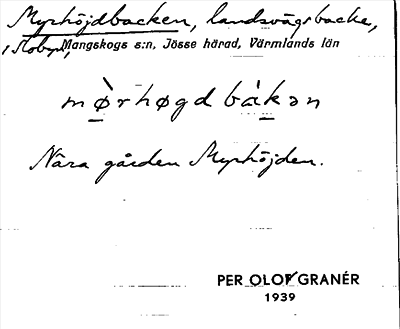 Myrhöjdbacken, landsvägsbacke,
i Mangskogs s:n, Jösse härad, Värmlands län
mø̀rhøgd bàkən
Nära gården Myrhöjden.
PER OLOF GRANÉR
1939